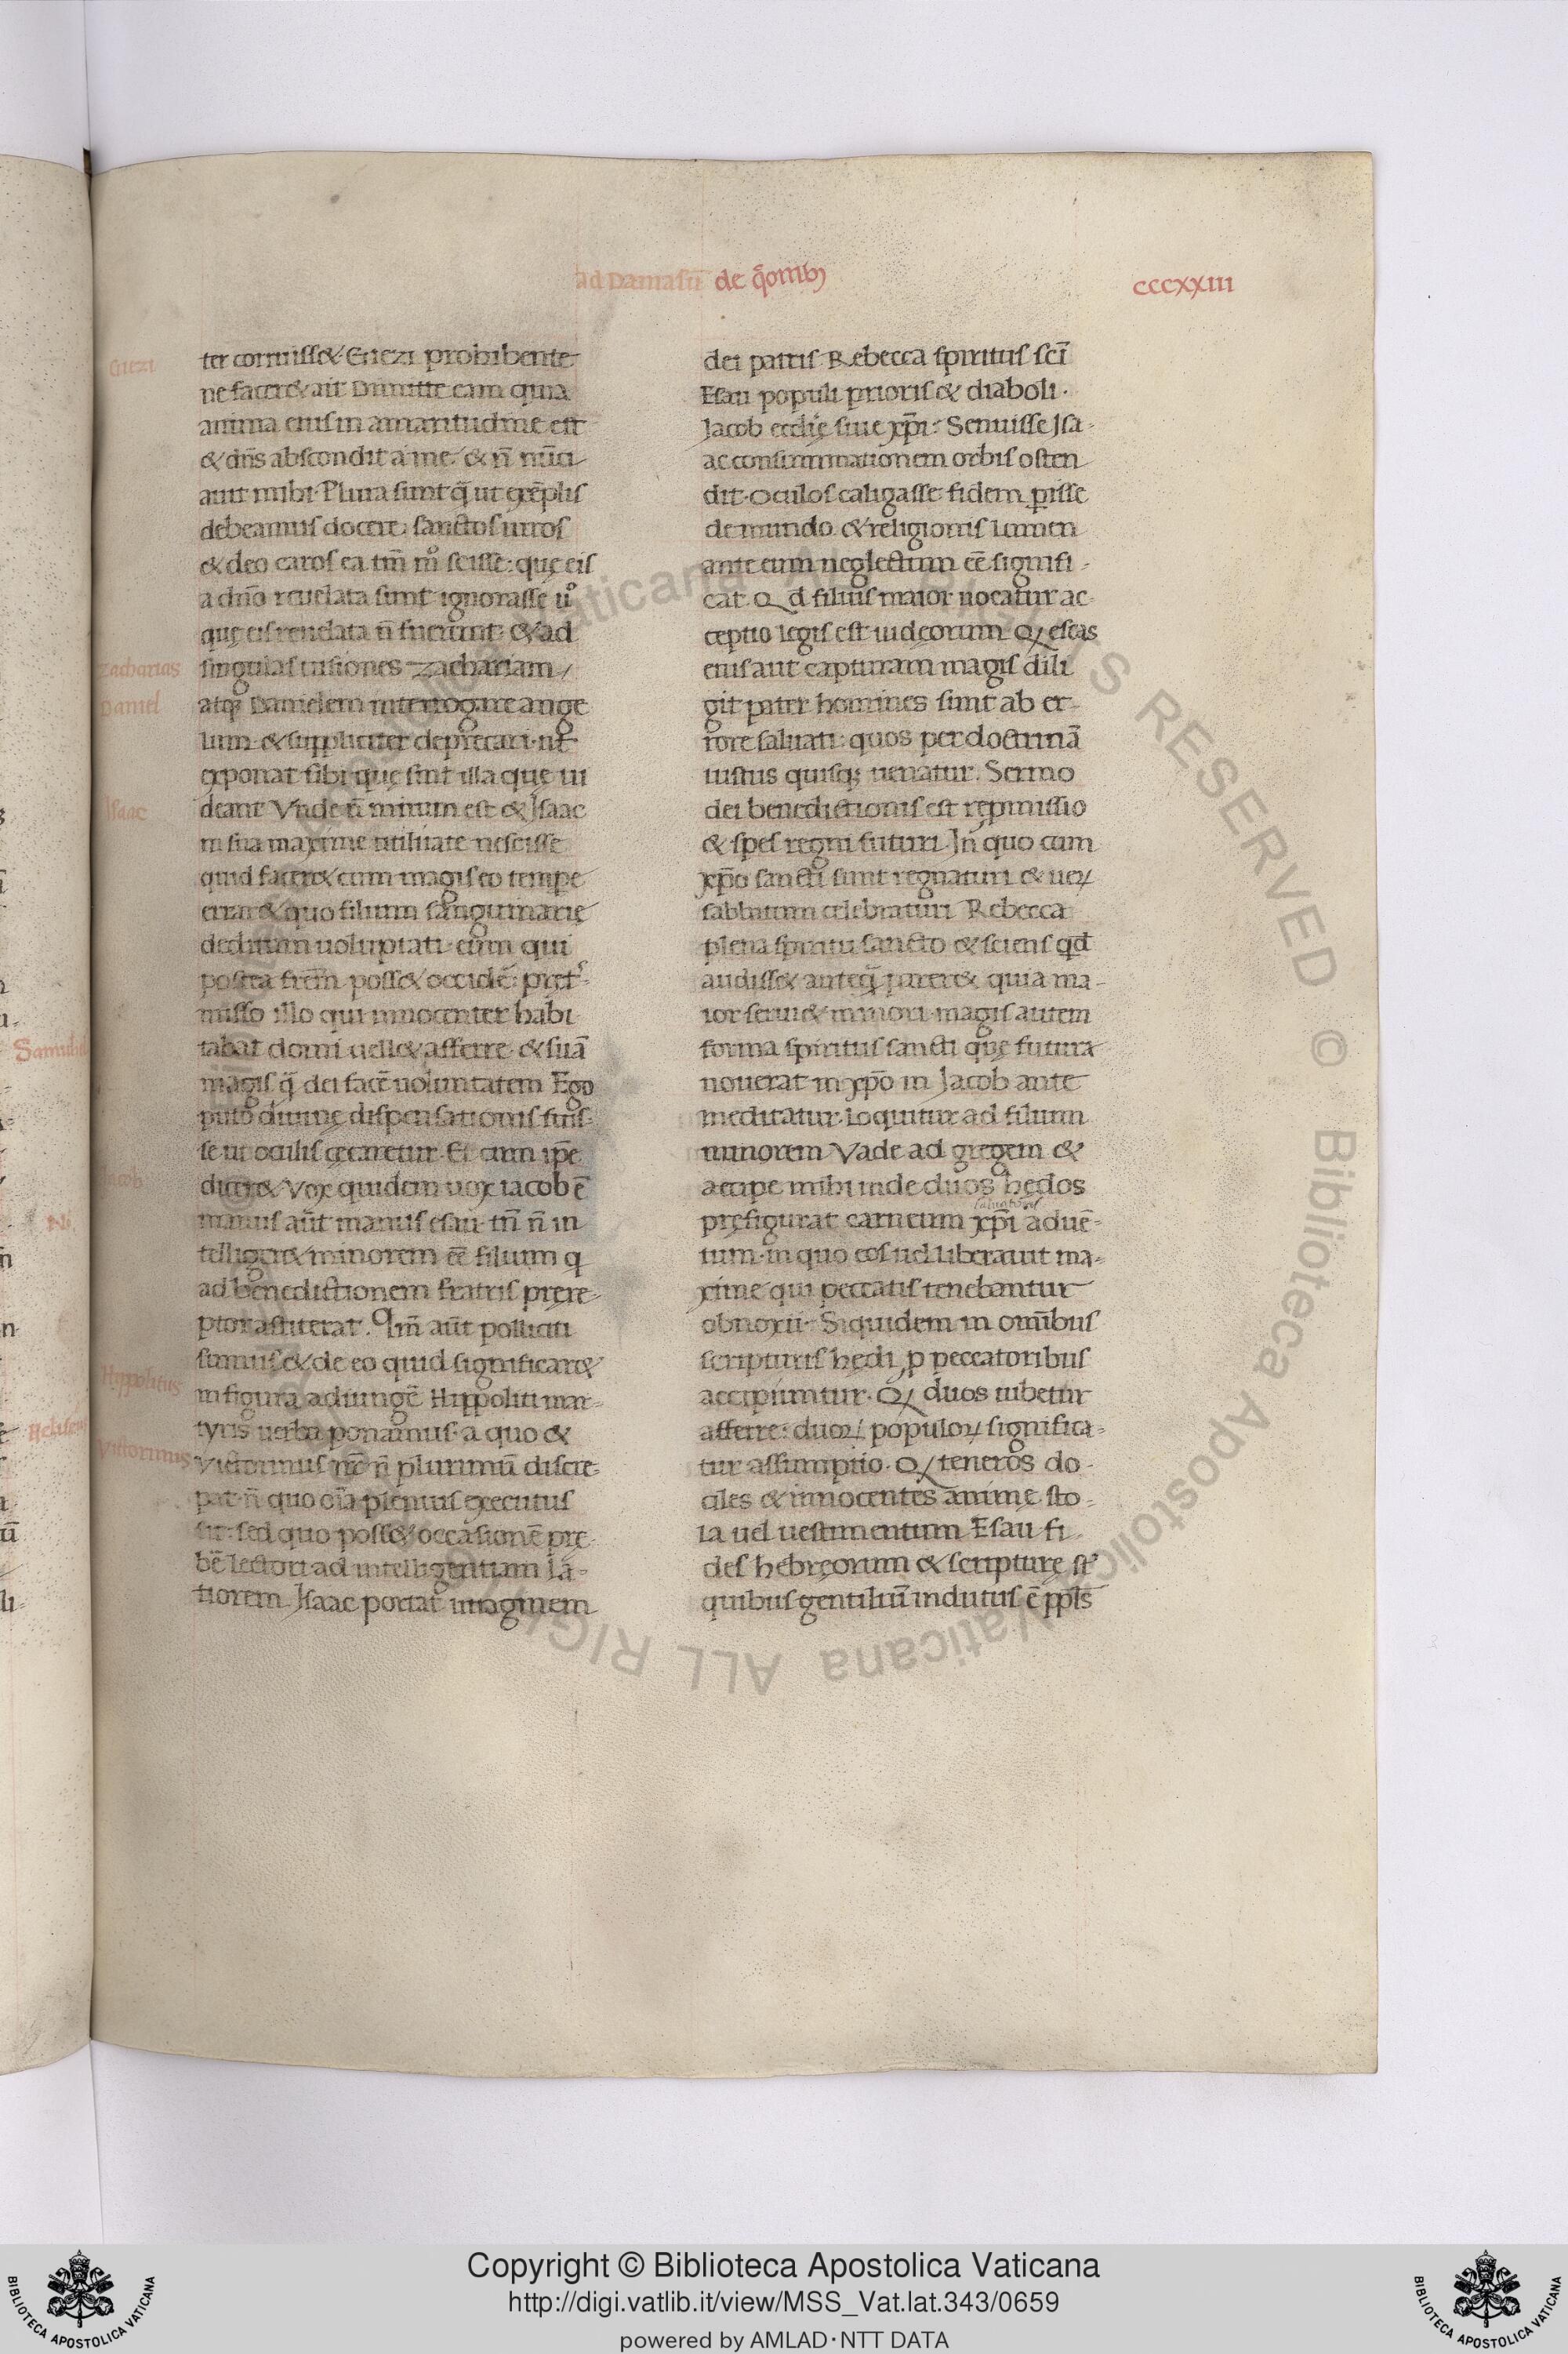 ad Damasū de q̄omb;
cccxxiii
Giezi
ter corruiss& Giezi prohibente
ne facer& ait Dimitte eam quia
anima eius in amaritudine est
& dn̄s abscondit a me & n̄ nūci
auit mihi. Plura sunt q̄ ut exēplis
debeamus docere. sanctos uiros
& deo caros ea tm̄ m° scisse: quę eis
a dn̄o reuelata sunt ignorasse u°
quę eis reuelata n̄ fuerunt: & ad
Zacharias
singulas uisiones Zachariam
Daniel
atq; Danielem interrogare ange
lum & suppliciter deprecari. ut
exponat sibi quę sint illa quę ui
Isaac
deant Vnde n̄ mirum est & Isaac
in sua maxime utilitate nescisse
quid facer& cum magis eo tempe
errar& quo filium sanguinarię
deditum uoluptati. eum qui
postea frēm poss& occidē: pręt
misso illo qui innocenter habi
tabat domi uell& afferre. & suā
magis q̄ dei facē uoluntatem Ego
puto diuinę dispensationis fuis-
se ut oculis cęcaretur. Et cum ip̄e
Iacob
dicer& Vox quidem uox iacob ē
manus aūt manus esau. tn̄ n̄ in
telliger& minorem ēē filium q
ad benedictionem fratris prere-
ptor astiterat. Qm̄ aūt polliciti
sumus & de eo quid significar&
Hippolitus
in figura adiungē Hippoliti mar-
tyris uerba ponamus. a quo &
Victorinus
Victorinus nr̄ n̄ plurimū discre-
pat. n̄ quo oīa plenius executus
sit: sed quo poss& occasionē prę-
bē lectori ad intelligentiam la-
tiorem Isaac portat imaginem
dei patris Rebecca spiritus scī
Esau populi prioris & diaboli.
Jacob ecclię siue xp̄i. Senuisse Isa-
ac consummationem orbis osten
dit. Oculos caligasse fidem pisse
de mundo. & religionis lumen
ante eum neglectum eē. signifi-
cat. Qd filius maior uocatur ac-
ceptio legis est iudeorum Q escas
eius aut capturam magis dili
git pater homines sunt ab er-
rore saluati: quos per doctrinā
iustus quisq; uenatur. Sermo
dei benedictionis est repmissio
& spes regni futuri. In quo cum
xp̄o sancti sunt regnaturi & ueꝝ
sabbatum celebraturi Rebecca
plena spiritu sancto & sciens qd̄
audiss& anteq̄ parer& quia ma-
ior serui& minori. magis autem
forma spiritus sancti quę futura
nouerat in xp̄o in Jacob ante
meditatur. loquitur ad filium
minorem Vade ad gregem &
accipe mihi inde duos hędos
pręfigurat carneum xp̄i aduē-
tum. in quo eos uel liberauit ma-
xime qui peccatis tenebantur
obnoxii. Siquidem in omībus
scripturis hędi p peccatoribus
accipiuntur. Q duos iubetur
afferre: duoꝝ populoꝝ significa-
tur assumptio. Q teneros do-
ciles & innocentes animę. sto-
la uel uestimentum Esau fi-
des hebręorum & scripturę st
quibus gentiliū indutus ē ppls
Samuhel
Helise
Copyright © Biblioteca Apostolica Vaticana
http://digi.vatlib.it/view/MSS_Vat.lat.343/0659
powered by AMLAD·NTT DATA
BIBLIOTECA APOSTOLICA VATICANA
BIBLIOTECA APOSTOLICA VATICANA